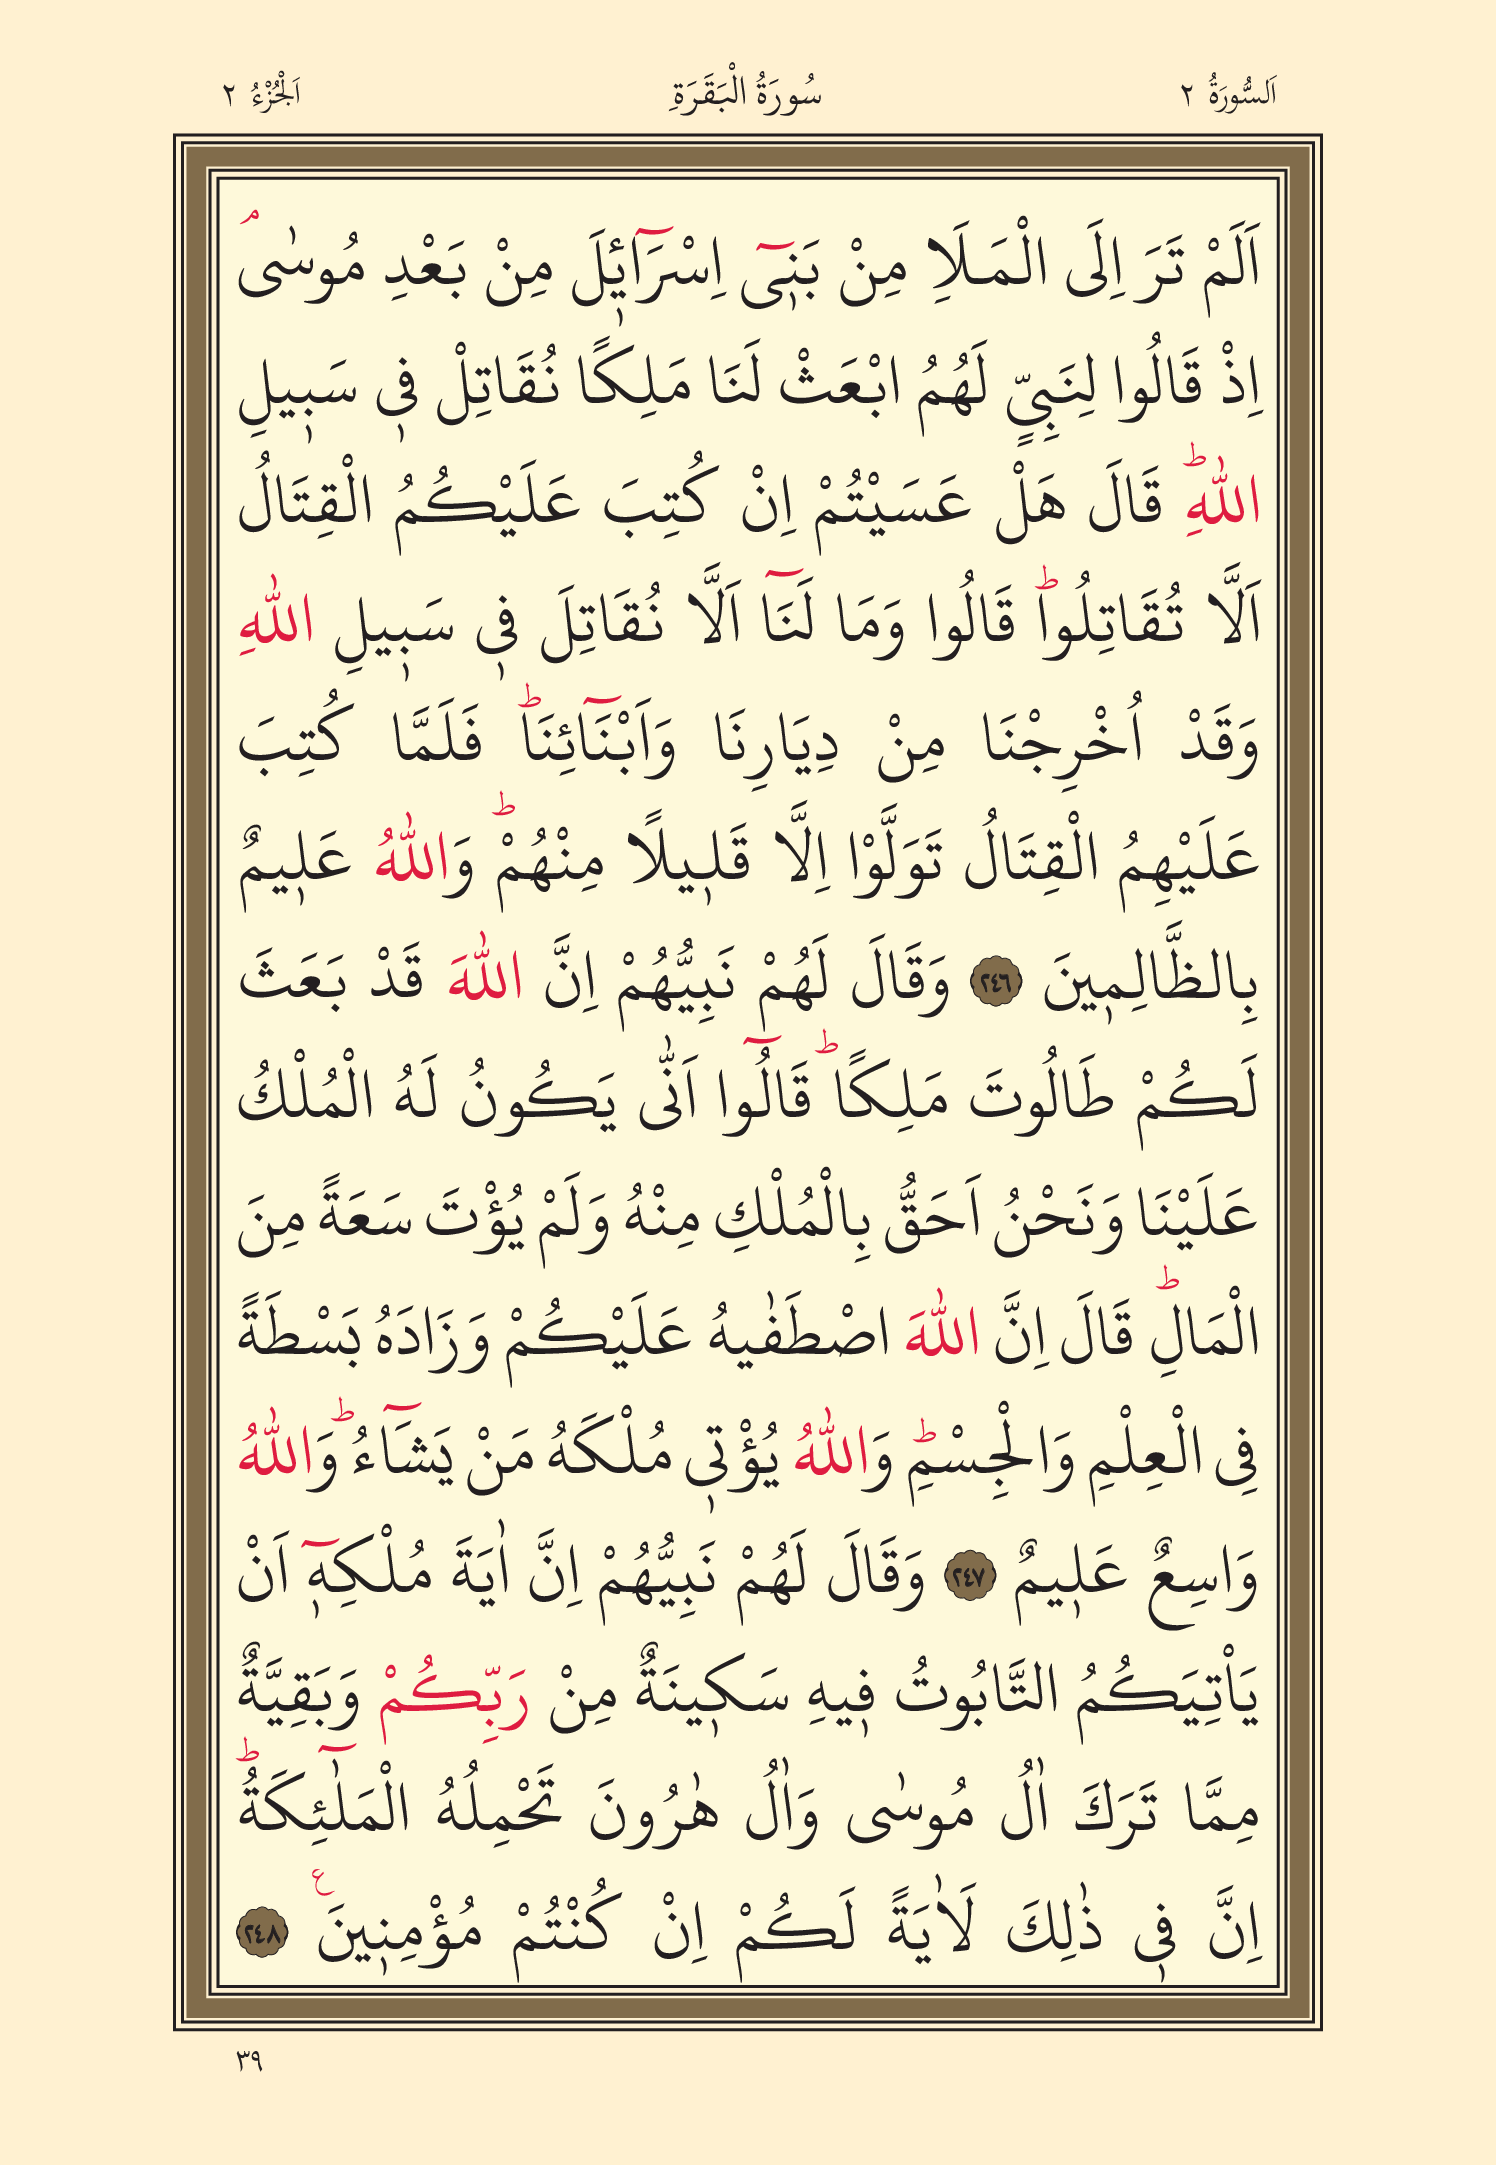 اَلسُّورَةُ ٢ سُورَةُ الْبَقَرَةِ اَلْجُزْءُ ٢
اَلَمْ تَرَ اِلَى الْمَلَاِ مِنْ بَنٖٓى اِسْرَٓایٖٔلَ مِنْ بَعْدِ مُوسٰىۘ
اِذْ قَالُوا لِنَبِىٍّ لَهُمُ ابْعَثْ لَنَا مَلِكًا نُقَاتِلْ فٖى سَبٖيلِ
اللّٰهِؕ قَالَ هَلْ عَسَيْتُمْ اِنْ كُتِبَ عَلَيْكُمُ الْقِتَالُ
اَلَّا تُقَاتِلُواؕ قَالُوا وَمَا لَنَٓا اَلَّا نُقَاتِلَ فٖى سَبٖيلِ اللّٰهِ
وَقَدْ اُخْرِجْنَا مِنْ دِيَارِنَا وَاَبْنَٓائِنَاؕ فَلَمَّا كُتِبَ
عَلَيْهِمُ الْقِتَالُ تَوَلَّوْا اِلَّا قَلٖيلًا مِنْهُمْؕ وَاللّٰهُ عَلٖيمٌ
بِالظَّالِمٖينَ ﴿٢٤٦﴾ وَقَالَ لَهُمْ نَبِيُّهُمْ اِنَّ اللّٰهَ قَدْ بَعَثَ
لَكُمْ طَالُوتَ مَلِكًاؕ قَالُٓوا اَنّٰى يَكُونُ لَهُ الْمُلْكُ
عَلَيْنَا وَنَحْنُ اَحَقُّ بِالْمُلْكِ مِنْهُ وَلَمْ يُؤْتَ سَعَةً مِنَ
الْمَالِؕ قَالَ اِنَّ اللّٰهَ اصْطَفٰيهُ عَلَيْكُمْ وَزَادَهُ بَسْطَةً
فِى الْعِلْمِ وَالْجِسْمِؕ وَاللّٰهُ يُؤْتٖى مُلْكَهُ مَنْ يَشَٓاءُؕ وَاللّٰهُ
وَاسِعٌ عَلٖيمٌ ﴿٢٤٧﴾ وَقَالَ لَهُمْ نَبِيُّهُمْ اِنَّ اٰيَةَ مُلْكِهٖٓ اَنْ
يَاْتِيَكُمُ التَّابُوتُ فٖيهِ سَكٖينَةٌ مِنْ رَبِّكُمْ وَبَقِيَّةٌ
مِمَّا تَرَكَ اٰلُ مُوسٰى وَاٰلُ هٰرُونَ تَحْمِلُهُ الْمَلٰٓئِكَةُؕ
اِنَّ فٖى ذٰلِكَ لَاٰيَةً لَكُمْ اِنْ كُنْتُمْ مُؤْمِنٖينَࣖ ﴿٢٤٨﴾
٣٩